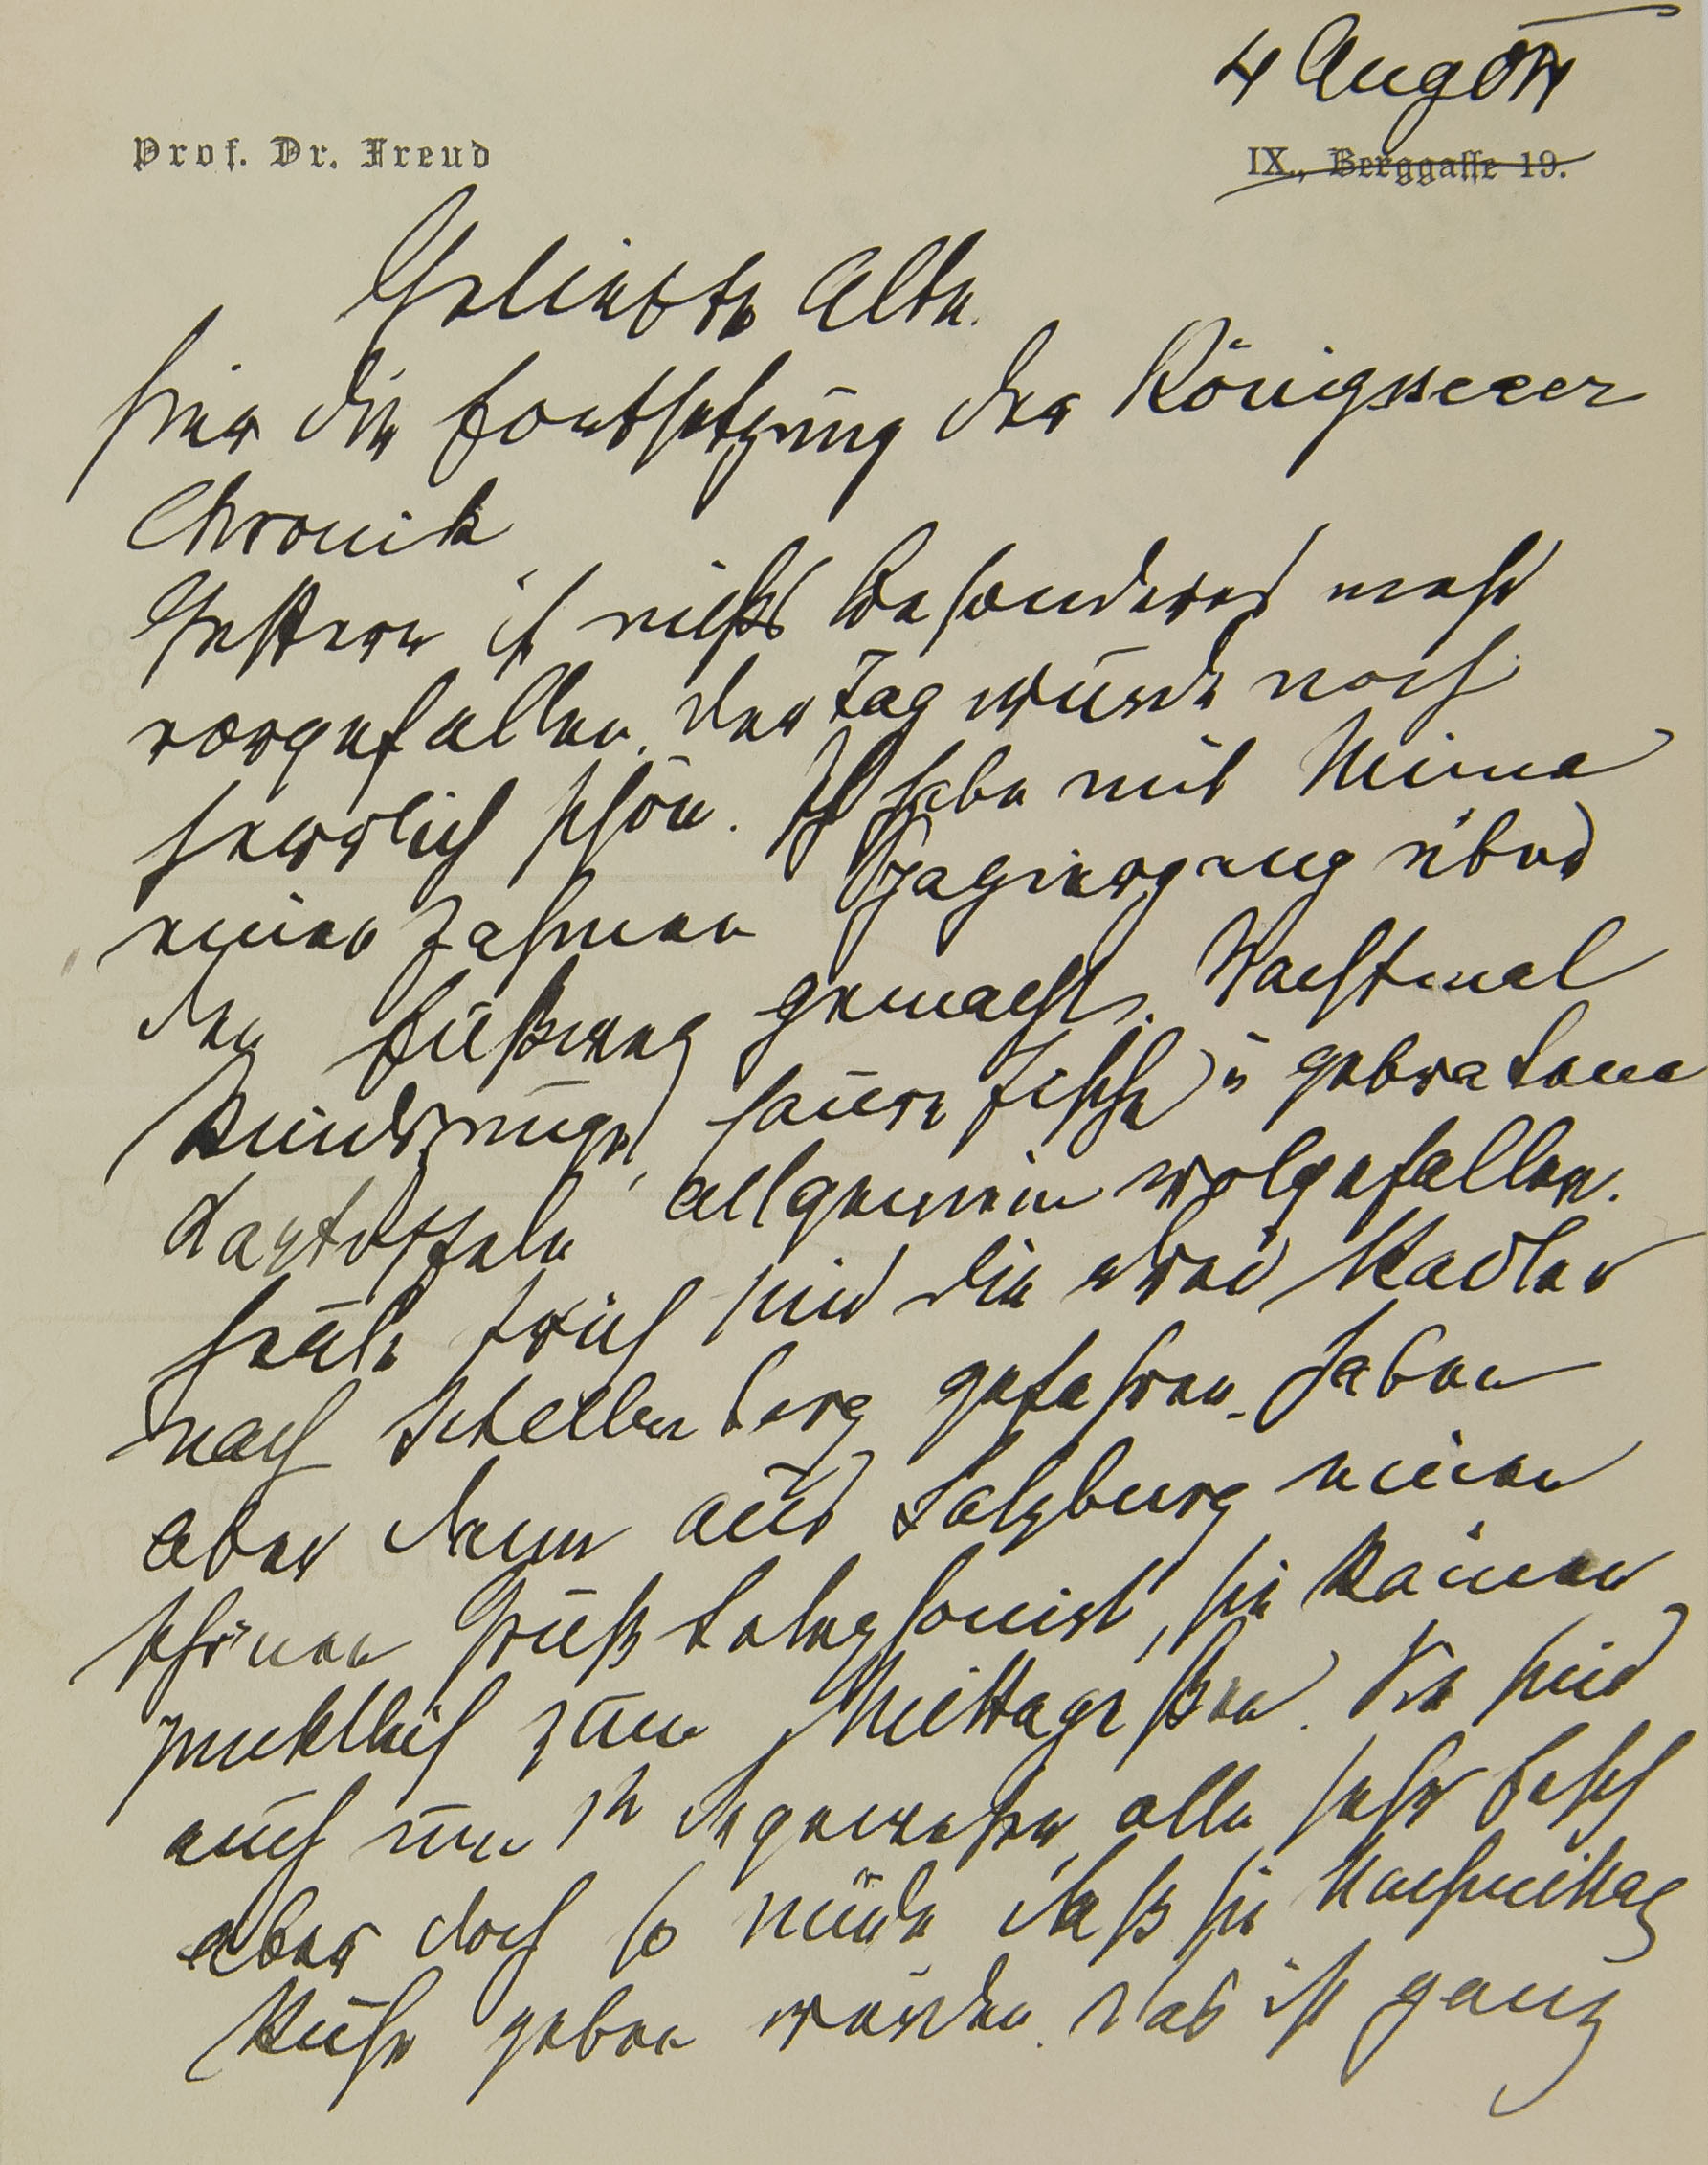 4 Aug 04
Prof. Dr. Freud
IX., Berggasse 19.
Geliebte Alte.
Hier die Fortsetzung der Königsseeer
Chronik
Gestern ist nichts besonderes mehr
vorgefallen. Der Tag wurde noch
herrlich schön. Ich habe mit Minna
einen zahmen Spaziergang über
den Fußweg gemacht. Nachtmal
saure Fische u gebratene
Kartoffeln, allgemein wolgefallen.
Heute früh sind die drei Radler
nach Schellenberg gefahren, haben
aber dann aus Salzburg einen
schönen Gruß telephonirt, sie kämen
pünktlich zum Mittagessen. Sie sind
auch um 1h dagewesen, alle sehr fesch
aber doch so müde daß sie Nachmittag
Ruhe geben werden. Das ist ganz